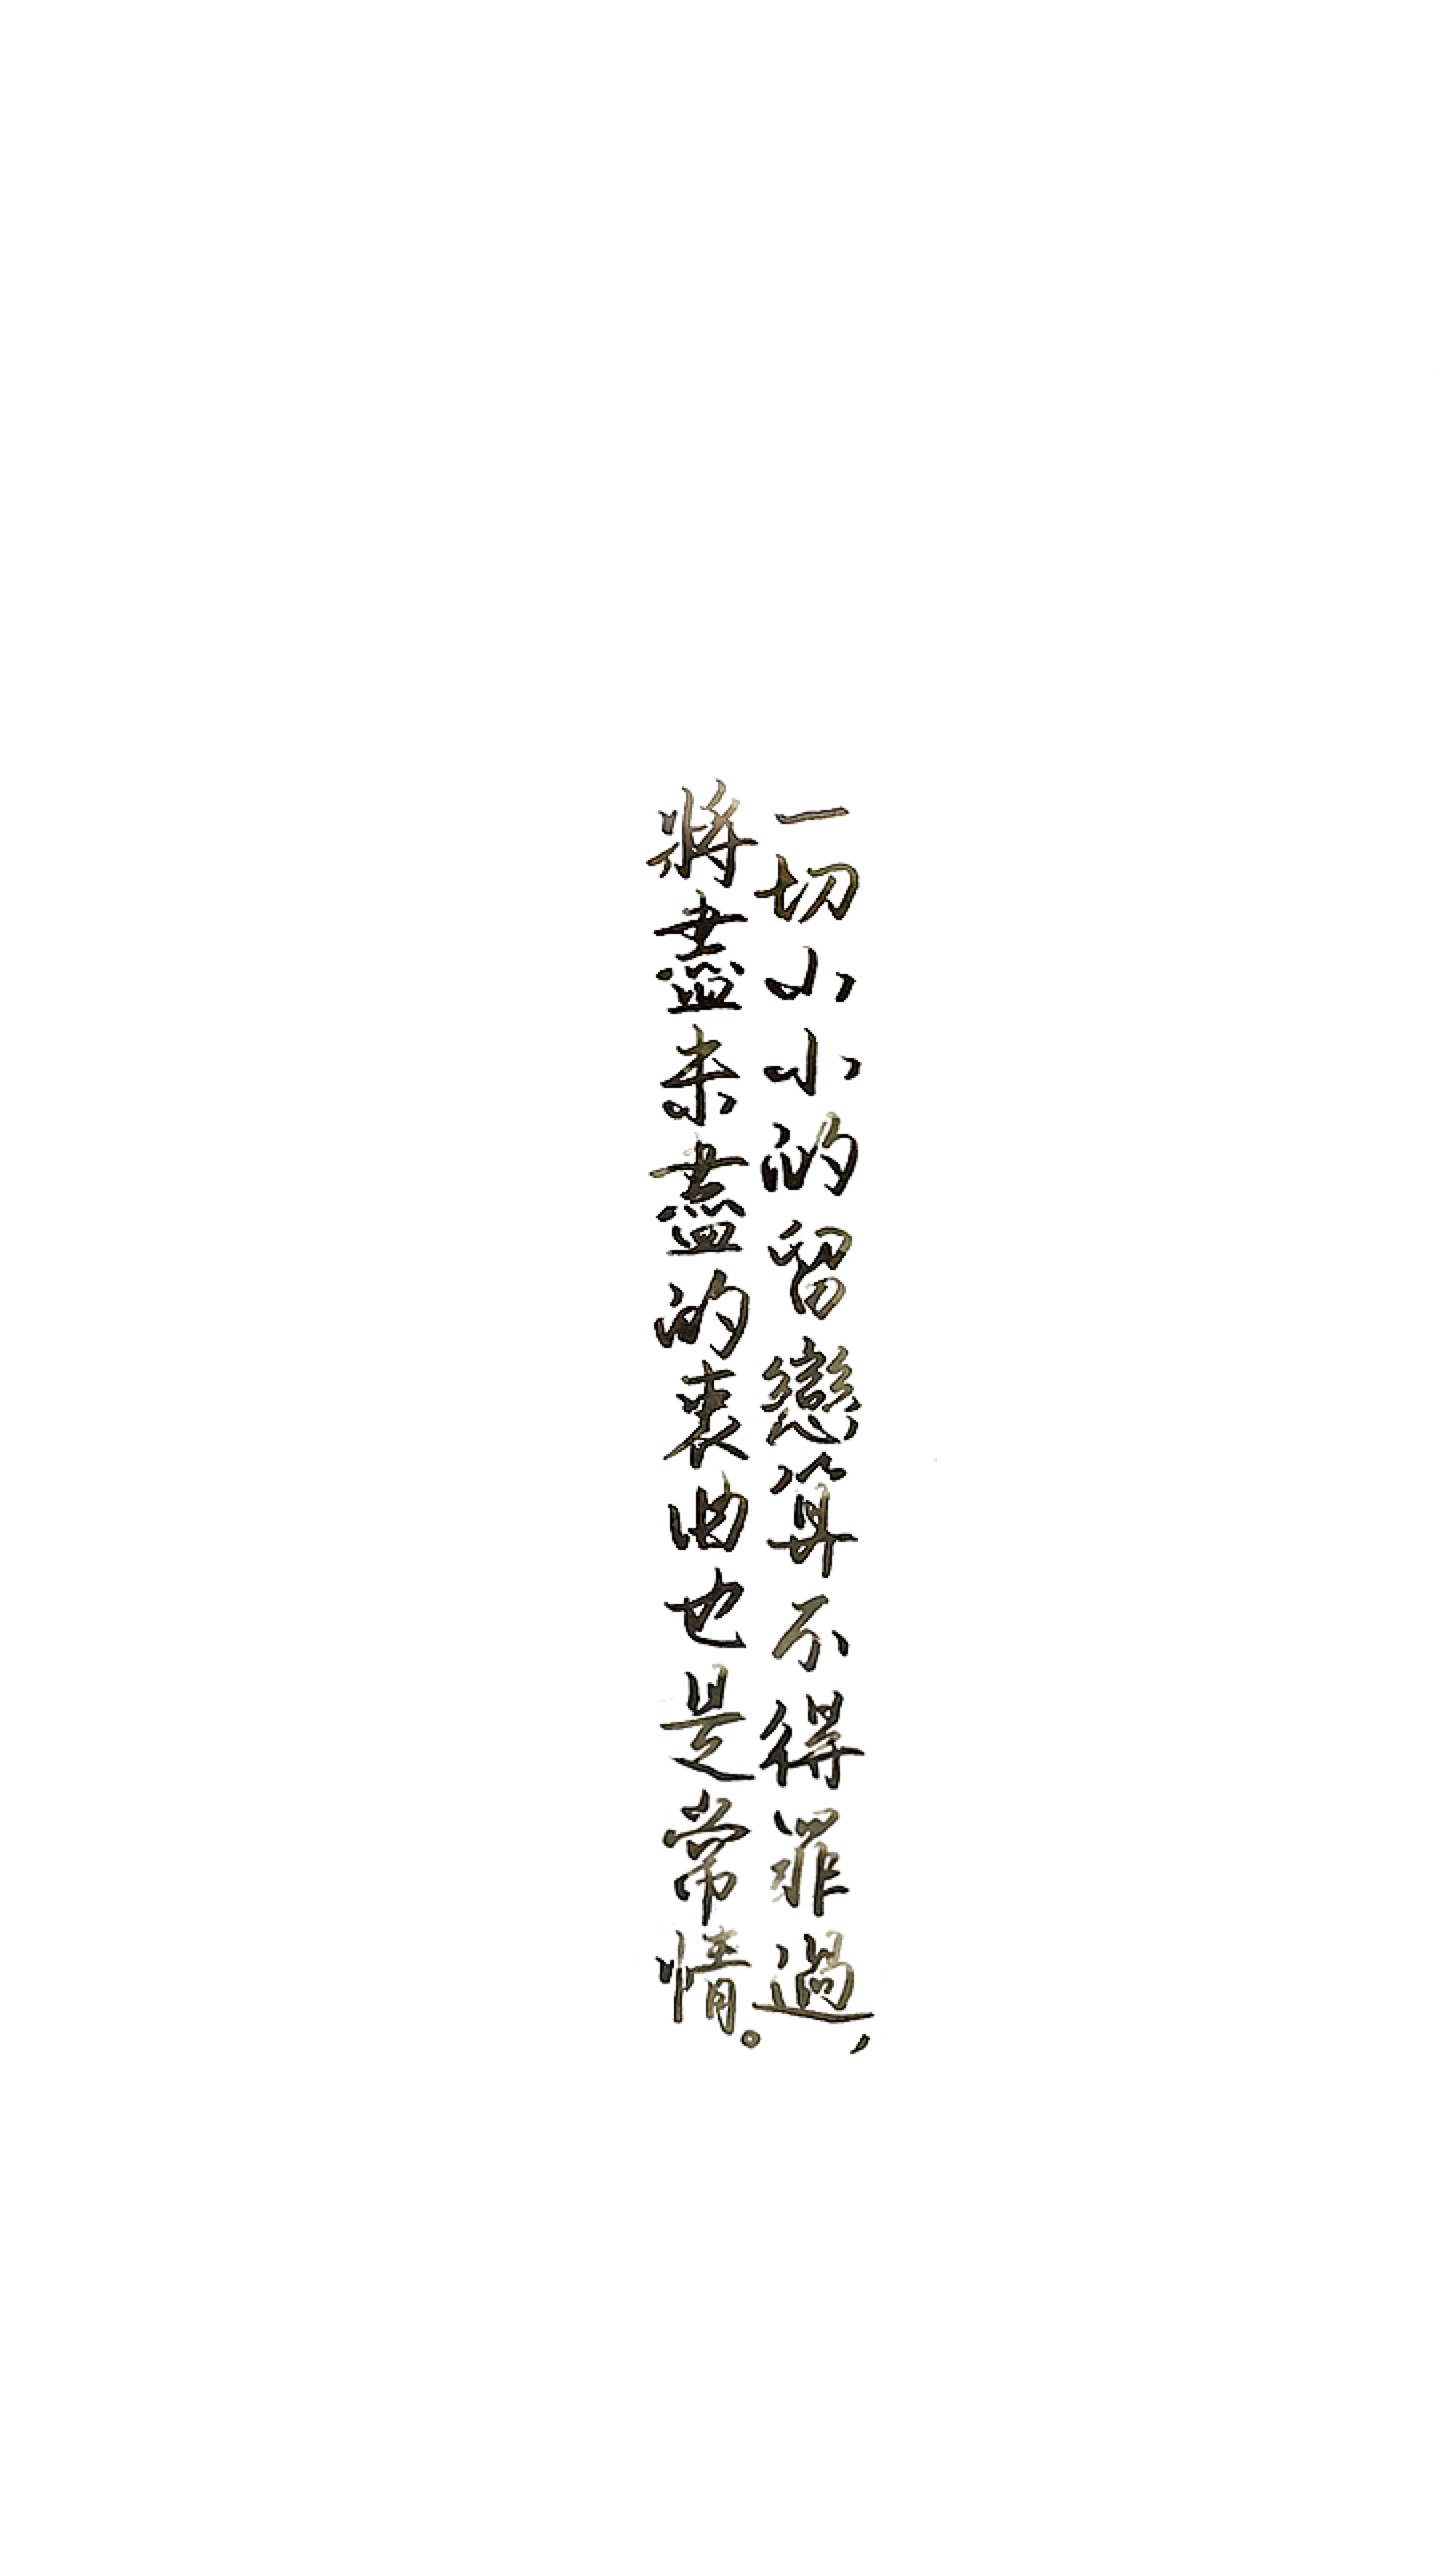 一切小小的留戀算不得罪過，
將盡未盡的衷曲也是常情。